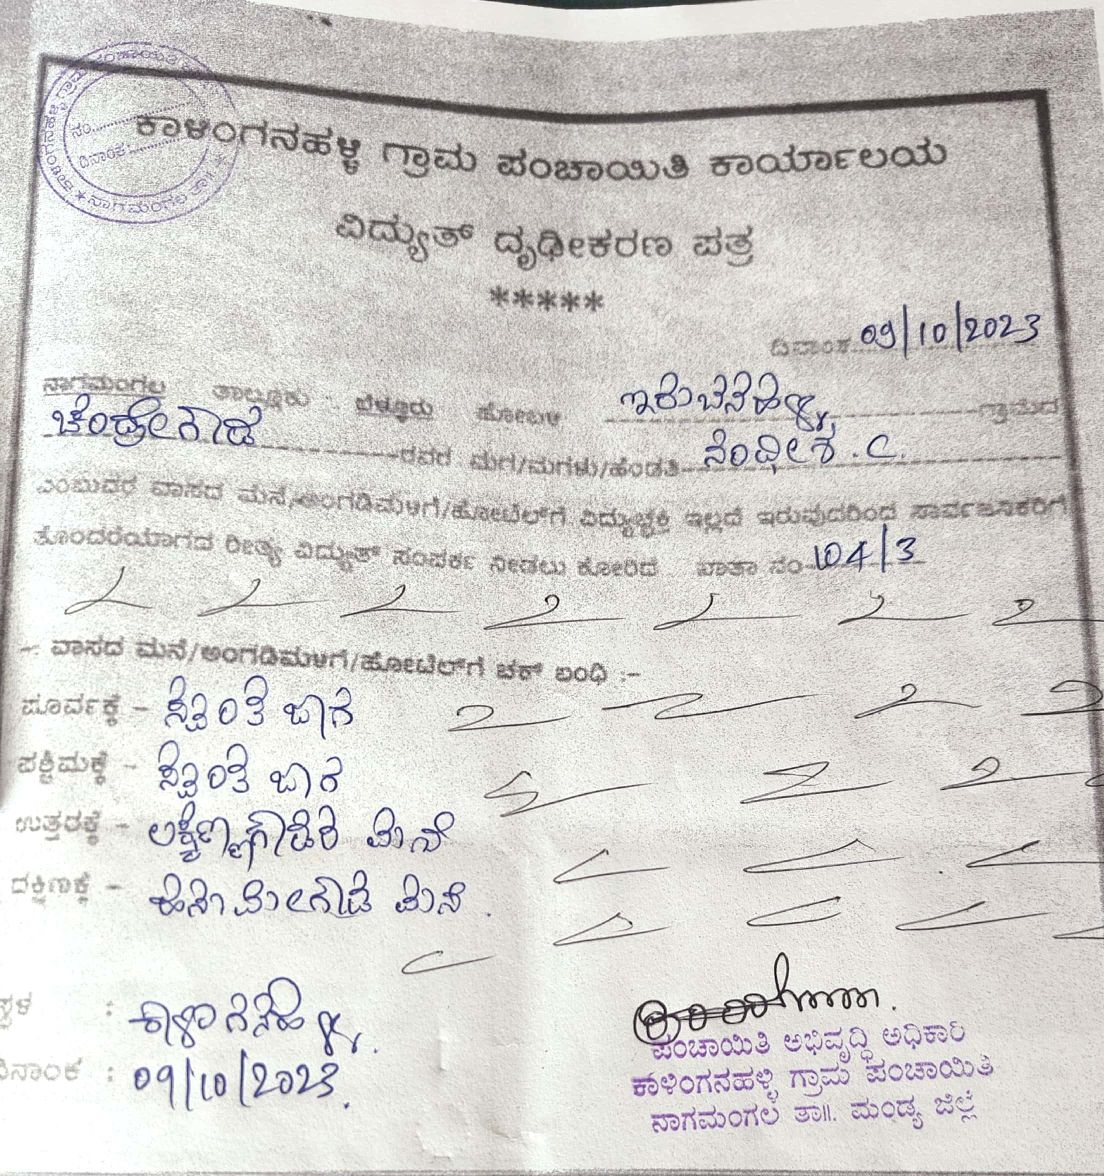 ನಾಗಮಂಗಲ ತಾ॥
ನಂ.
ದಿನಾಂಕ:
ಕಾಳಿಂಗನಹಳ್ಳಿ ಗ್ರಾಮ ಪಂಚಾಯಿತಿ ಕಾರ್ಯಾಲಯ
ವಿದ್ಯುತ್ ದೃಢೀಕರಣ ಪತ್ರ
*****
ದಿನಾಂಕ 09/10/2023
ನಾಗಮಂಗಲ ತಾಲ್ಲೂಕು ಬೆಳ್ಳೂರು ಹೋಬಳಿ ಗ್ರಾಮದ
ಚಂದ್ರೇಗೌಡ ರವರ ಮಗ/ಮಗಳು/ಹೆಂಡತಿ ನಂದೀಶ. C.
ಎಂಬುವರ ವಾಸದ ಮನೆ/ಅಂಗಡಿಮಳಿಗೆ/ಹೋಟೆಲ್‌ಗೆ ವಿದ್ಯುಚ್ಛಕ್ತಿ ಇಲ್ಲದೆ ಇರುವುದರಿಂದ ಸಾರ್ವಜನಿಕರಿಗೆ
ತೊಂದರೆಯಾಗದ ರೀತ್ಯ ವಿದ್ಯುತ್ ಸಂಪರ್ಕ ನೀಡಲು ಕೋರಿದೆ ಖಾತಾ ನಂ 104/3
-: ವಾಸದ ಮನೆ/ಅಂಗಡಿಮಳಿಗೆ/ಹೋಟೆಲ್‌ಗೆ ಚಕ್ ಬಂಧಿ :-
ಪೂರ್ವಕ್ಕೆ - ಸ್ವಂತ ಜಾಗ
ಪಶ್ಚಿಮಕ್ಕೆ - ಸ್ವಂತ ಜಾಗ
ಉತ್ತರಕ್ಕೆ - ಮನೆ
ದಕ್ಷಿಣಕ್ಕೆ - ಮನೆ.
ಸ್ಥಳ : ಕಾಳಿಂಗನಹಳ್ಳಿ.
ದಿನಾಂಕ : 09/10/2023.
ಪಂಚಾಯಿತಿ ಅಭಿವೃದ್ಧಿ ಅಧಿಕಾರಿ
ಕಾಳಿಂಗನಹಳ್ಳಿ ಗ್ರಾಮ ಪಂಚಾಯಿತಿ
ನಾಗಮಂಗಲ ತಾ॥. ಮಂಡ್ಯ ಜಿಲ್ಲೆ